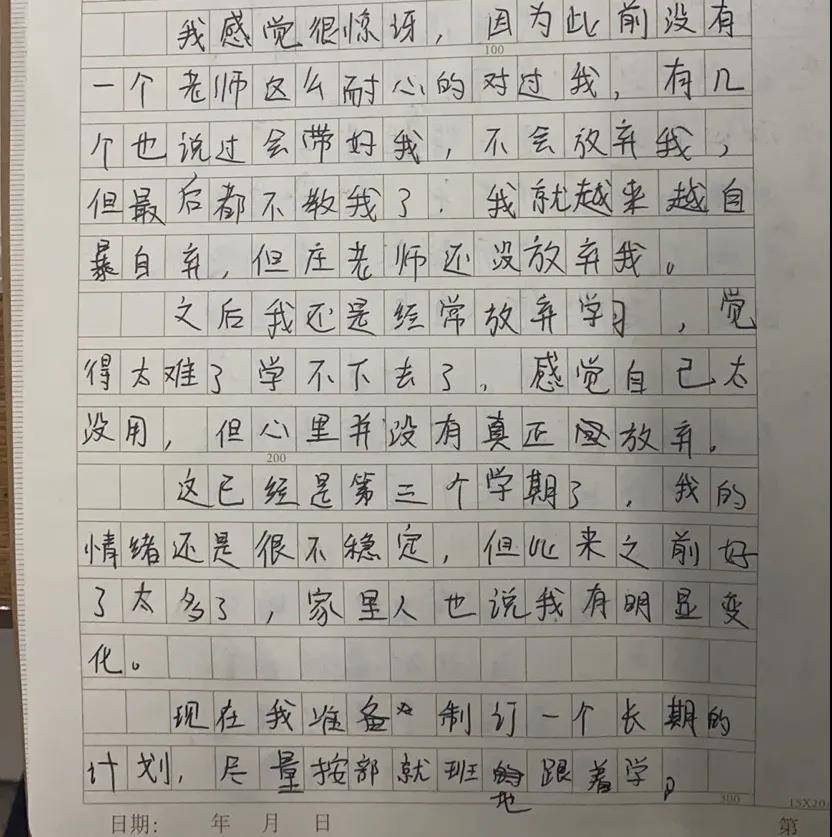 我感觉很惊讶，因为此前没有
100
一个老师这么耐心的对过我，有几
个也说过会带好我，不会放弃我，
但最后都不教我了．我就越来越自
暴自弃，但庄老师还没放弃我。
之后我还是经常放弃学习，觉
得太难了学不下去了．感觉自己太
没用，但心里并没有真正放弃．
200
这已经是第三个学期了，我的
情绪还是很不稳定，但比来之前好
了太多了，家里人也说我有明显变
化。
现在我准备制订一个长期的
计划，尽量按部就班地跟着学。
300
15X20
日期： 年 月 日 第